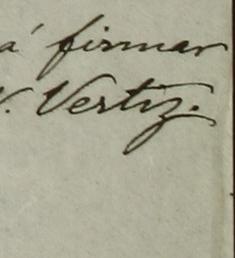 á firmar
V. Vertiz.